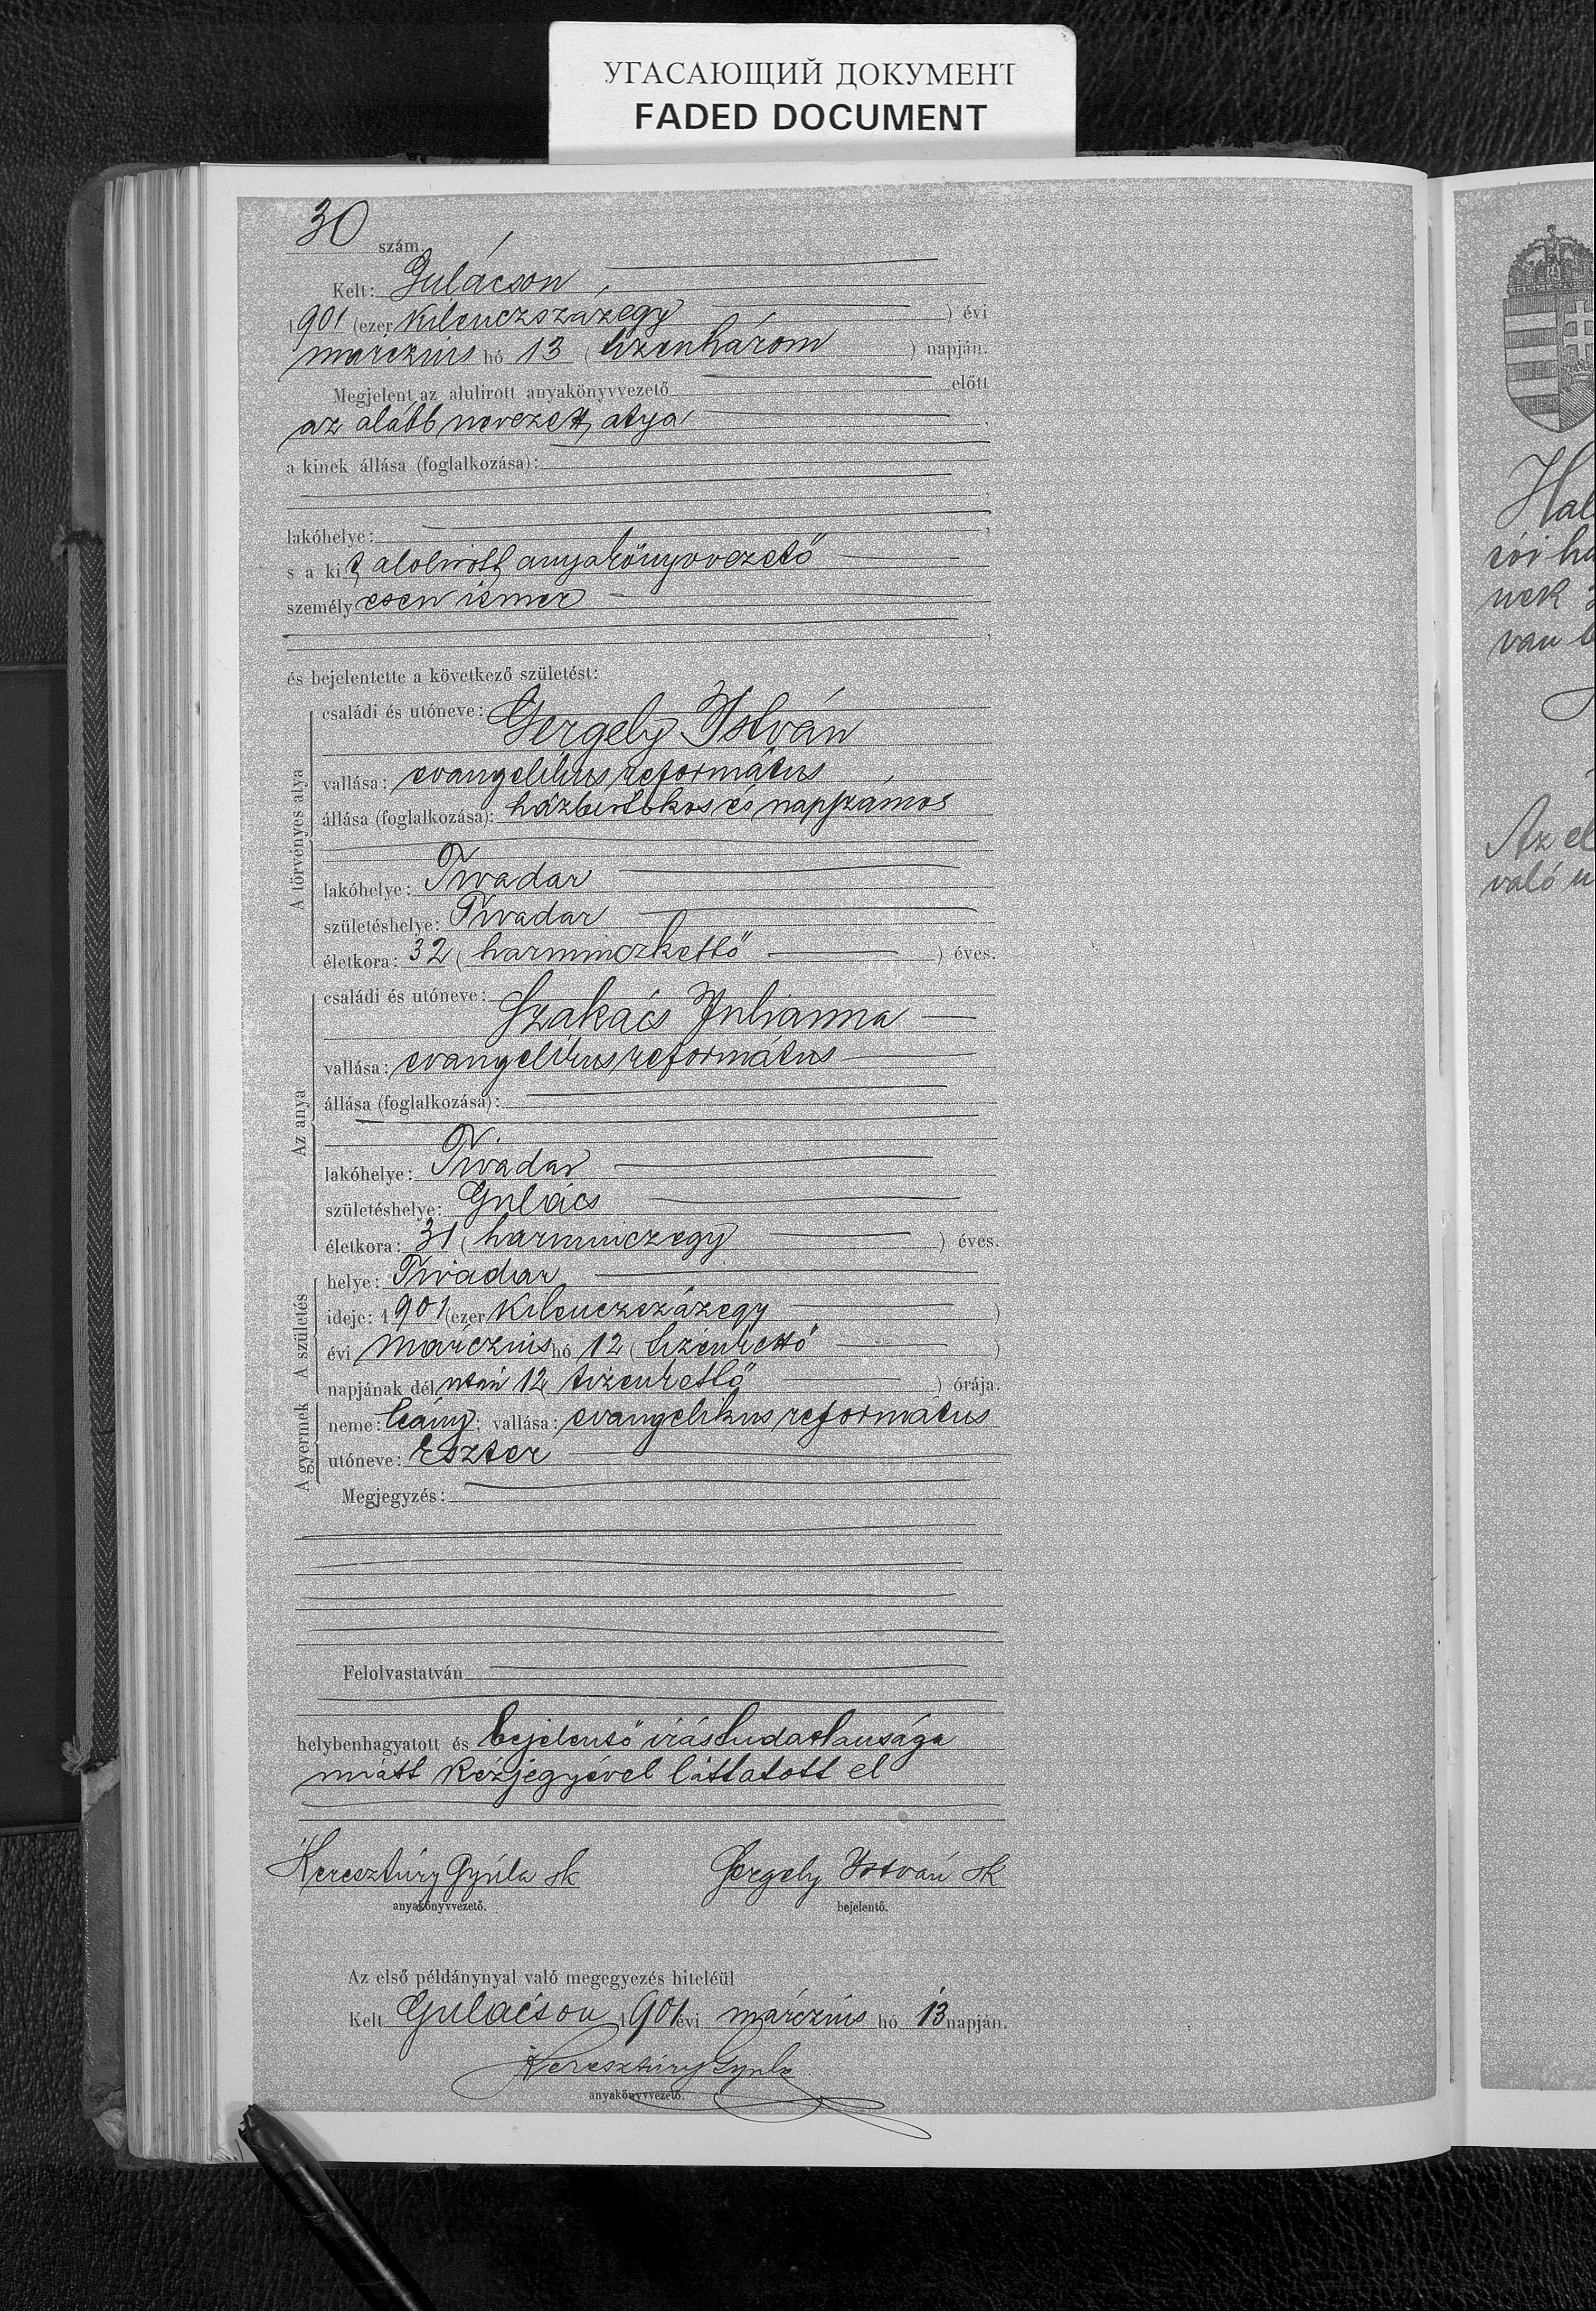 УГАСАЮЩИЙ ДОКУМЕНТ
FADED DOCUMENT
30 szám.
Kelt: Gulácson,
1901 (ezer kilenczszázegy) évi
márczius hó 13 (tizenhárom) napján.
Megjelent az alulirott anyakönyvvezető előtt
az alább nevezett atya
a kinek állása (foglalkozása):
lakóhelye:
s a kit alolirott anyakönyvvezető
személyesen ismer
és bejelentette a következő születést:
A törvényes atya
családi és utóneve:
Gergely István
vallása: evangelikus református
állása (foglalkozása): házbirtokos és napszámos
lakóhelye: Tivadar
születéshelye: Tivadar
életkora: 32 (harminczkettő) éves.
Az anya
családi és utóneve:
Szakács Julianna
vallása: evangelikus református
állása (foglalkozása):
lakóhelye: Tivadar
születéshelye: Gulács
életkora: 31 (harminczegy) éves.
A születés
helye: Tivadar
ideje: 1901 (ezer kilenczszázegy)
évi márczius hó 12 (tizenkettő)
napjának délután 12 (tizenkettő) órája.
A gyermek
neme: leány; vallása: evangelikus református
utóneve: Eszter
Megjegyzés:
Felolvastatván
helybenhagyatott és bejelentő irástudatlansága
miatt kézjegyével láttatott el
Keresztúry Gyula sk Gergely István sk
anyakönyvvezető. bejelentő.
Az első példánynyal való megegyezés hiteléül
Kelt Gulácson 1901 évi márczius hó 13 napján.
Keresztúry Gyula
anyakönyvvezető.
nek
van
Az el
való